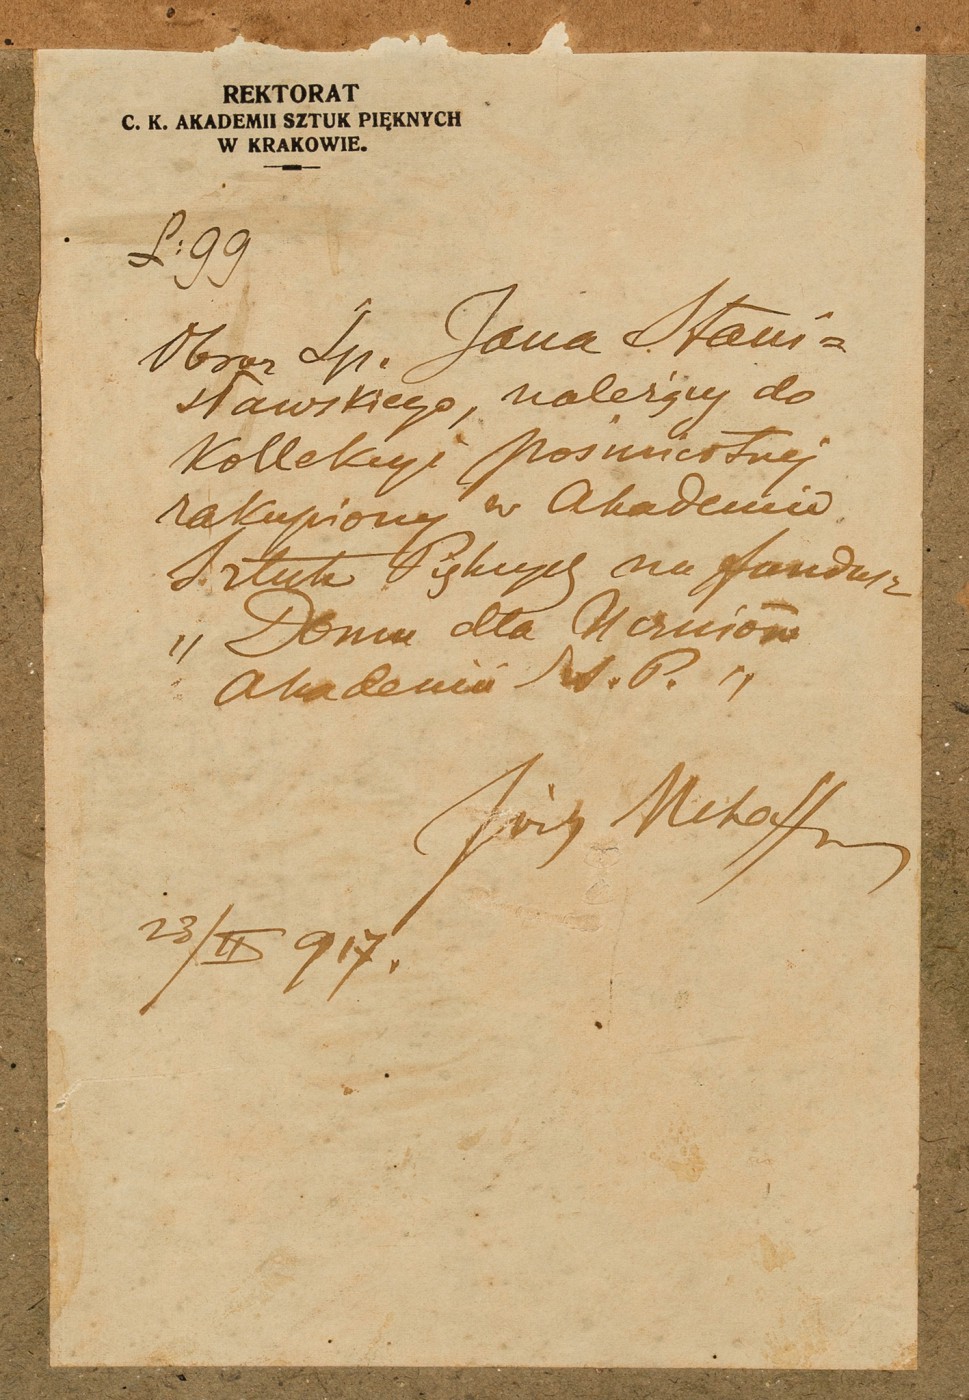 REKTORAT
C. K. AKADEMII SZTUK PIĘKNYCH
W KRAKOWIE.
L: 99
Obraz śp. Jana Stani=
sławskiego, należący do
Kollekcyi pośmiertnej
zakupiony w Akademii
Sztuk Pięknych na fundusz
„Domu dla Uczniów
Akademii Szt. P."
Józef Mehoffer
23/II 917.